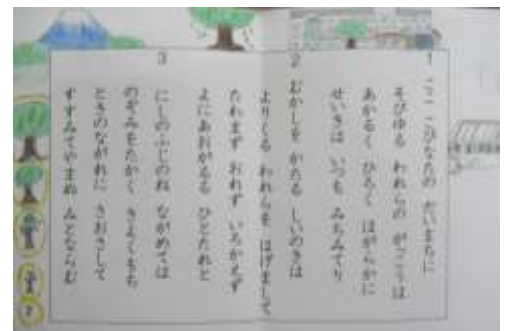 1 ここ こひなたの だいまちに
そびゆる われらの がっこうは
あかるく ひろく ほがらかに
せいきは いつも みちみてり
2 むかしを かたる しいのきは
よりくる われらを はげまして
たわまず おれず いろかえず
よにあおがるる ひとたれと
3 にしのふじのね ながめては
のぞみをたかく きよくもち
ときのながれに さおさして
すすみてやまぬ みとならむ